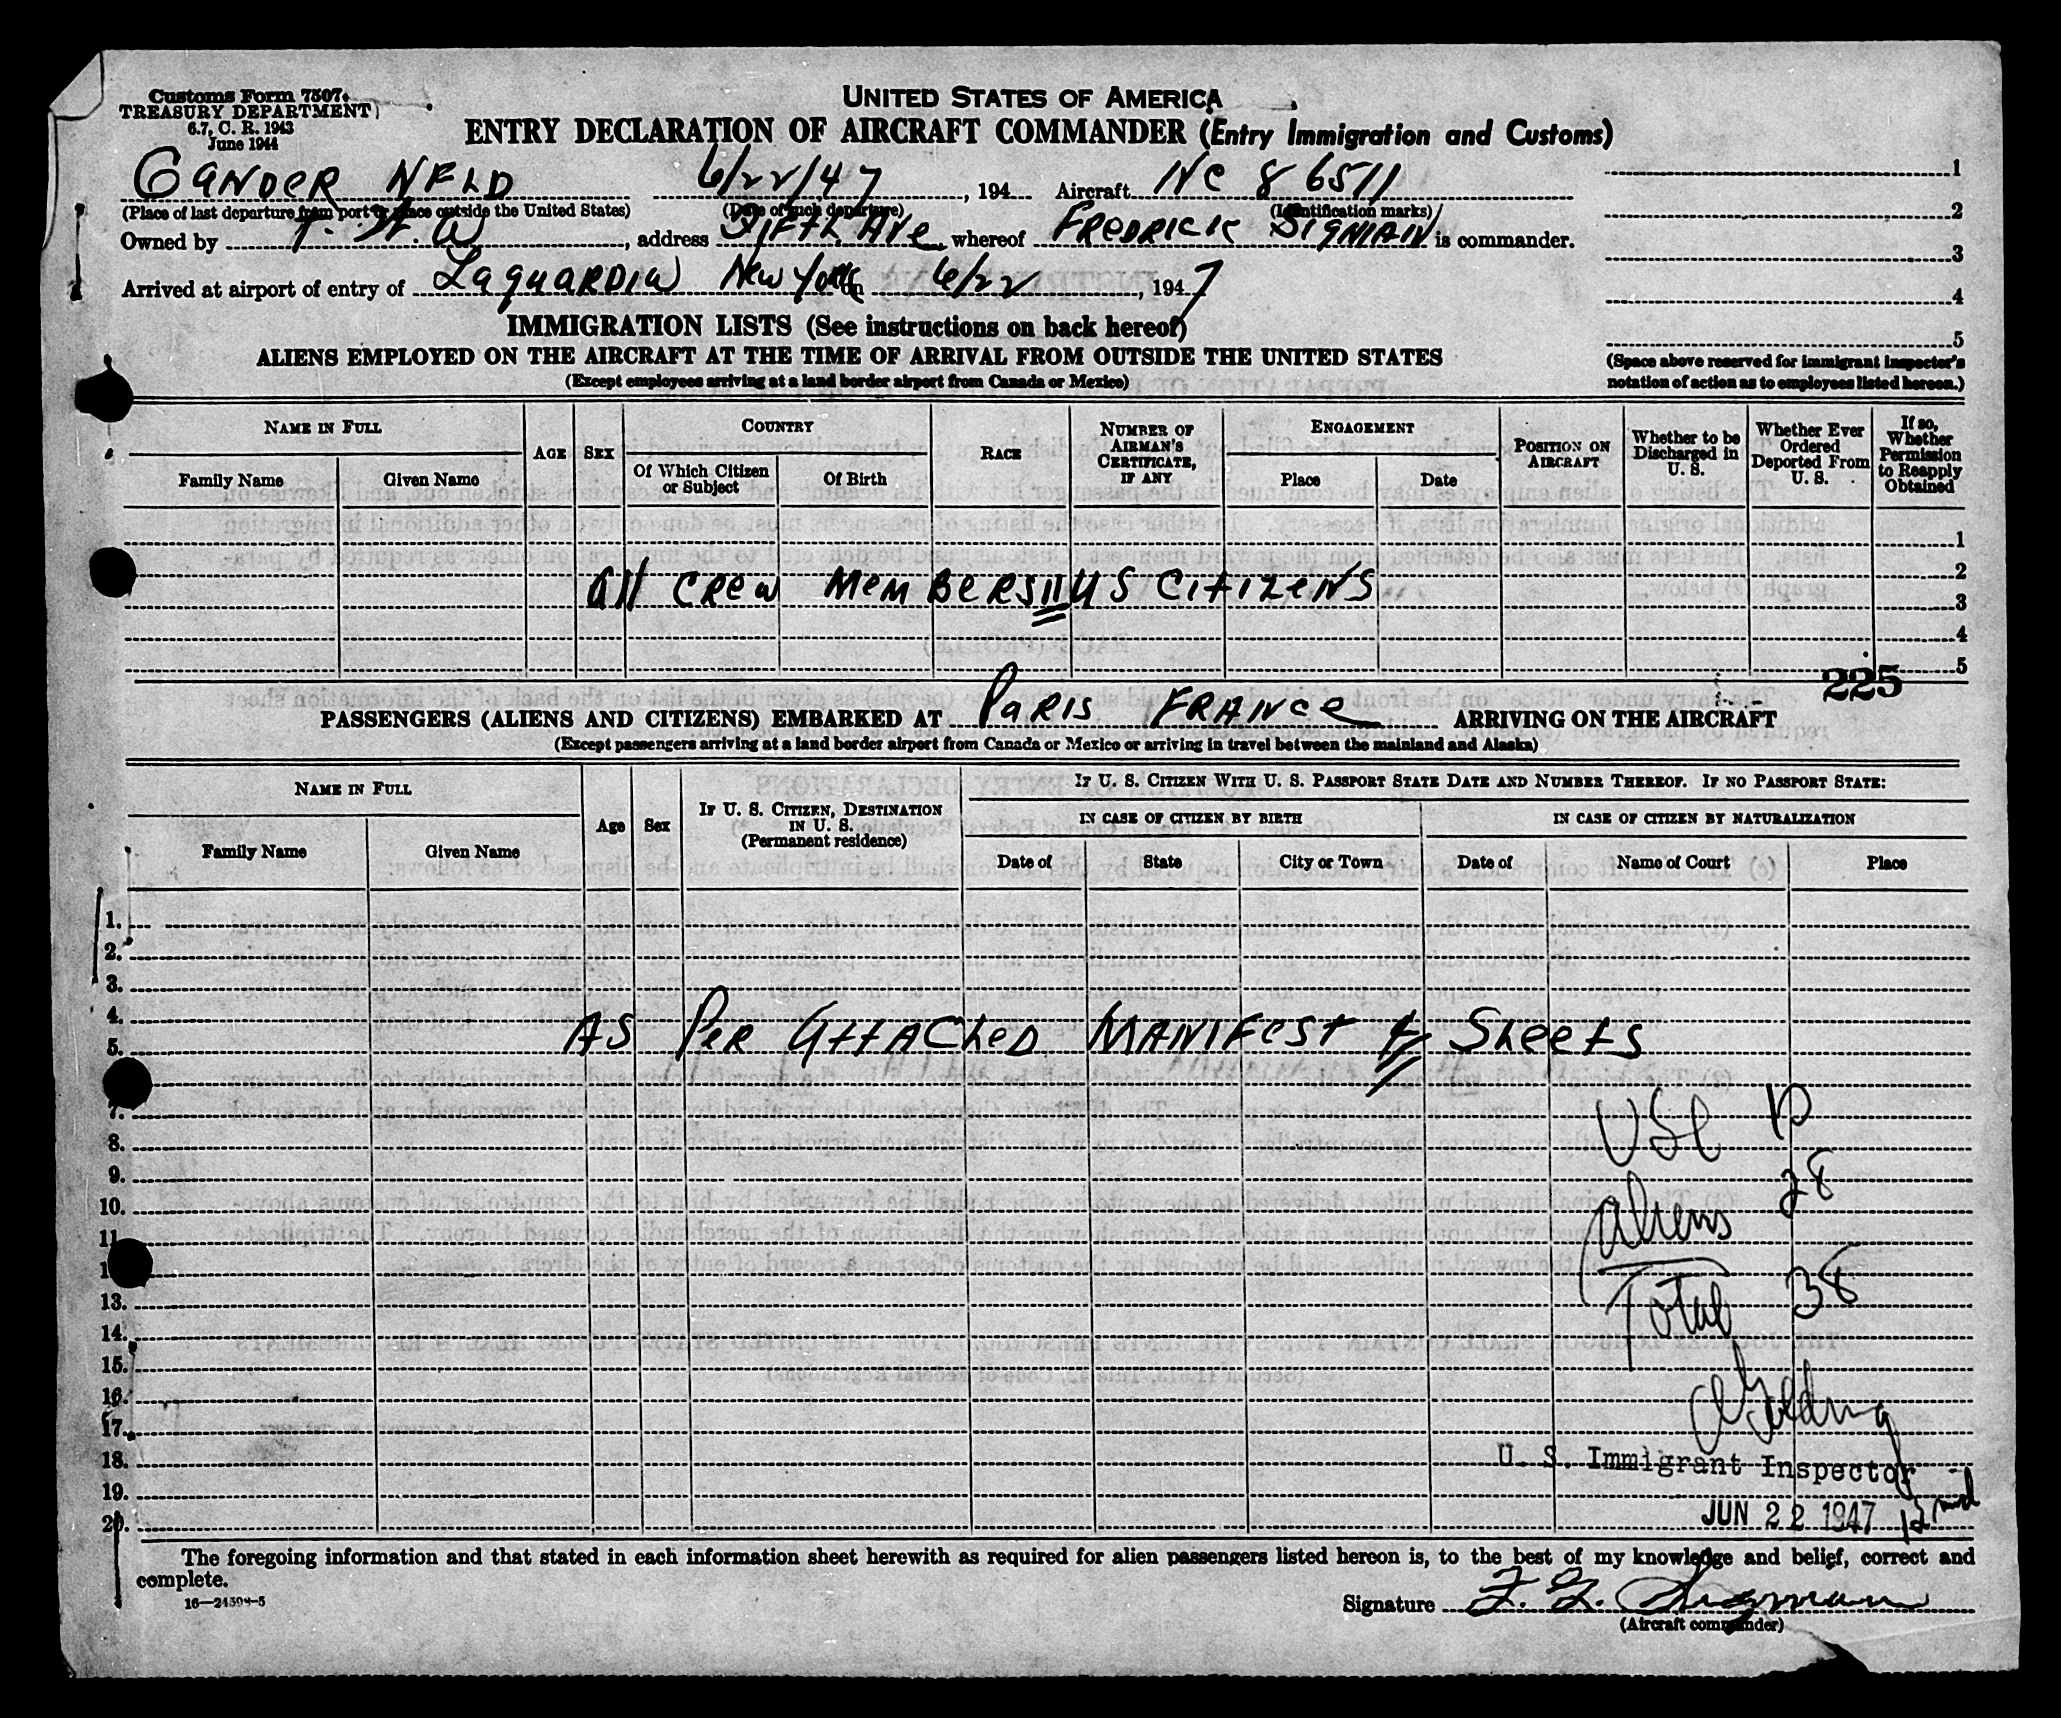 Customs Form 7507
TREASURY DEPARTMENT
6.7, C. R. 1943
June 1944
UNITED STATES OF AMERICA
ENTRY DECLARATION OF AIRCRAFT COMMANDER (Entry Immigration and Customs)
GANDER NFLD 6/22/47, 194 Aircraft NC 86511
(Place of last departure from port or place outside the United States) (Date of such departure) (Identification marks)
Owned by T. W. A, address Fifth Ave, whereof FREDRICK SIGMAN is commander.
Arrived at airport of entry of Laguardia New York on 6/22, 1947
1
2
3
4
5
(Space above reserved for immigrant inspector's
notation of action as to employees listed hereon.)
IMMIGRATION LISTS (See instructions on back hereof)
ALIENS EMPLOYED ON THE AIRCRAFT AT THE TIME OF ARRIVAL FROM OUTSIDE THE UNITED STATES
(Except employees arriving at a land border airport from Canada or Mexico)
NAME IN FULL
Family Name
Given Name
AGE
SEX
COUNTRY
Of Which Citizen or Subject
Of Birth
RACE
NUMBER OF AIRMAN'S CERTIFICATE, IF ANY
ENGAGEMENT
Place
Date
POSITION ON AIRCRAFT
Whether to be Discharged in U. S.
Whether Ever Ordered Deported From U. S.
If so, Whether Permission to Reapply Obtained
1
2
All CREW MEMBERS 11 US CITIZENS
3
4
5
225
PASSENGERS (ALIENS AND CITIZENS) EMBARKED AT PARIS FRANCE ARRIVING ON THE AIRCRAFT
(Except passengers arriving at a land border airport from Canada or Mexico or arriving in travel between the mainland and Alaska)
NAME IN FULL
Family Name
Given Name
Age
Sex
IF U. S. CITIZEN, DESTINATION IN U. S.
(Permanent residence)
IF U. S. CITIZEN WITH U. S. PASSPORT STATE DATE AND NUMBER THEREOF. IF NO PASSPORT STATE:
IN CASE OF CITIZEN BY BIRTH
Date of
State
City or Town
IN CASE OF CITIZEN BY NATURALIZATION
Date of
Name of Court
Place
1.
2.
3.
4.
5.
AS PER ATTACHED MANIFEST Sheets
7.
USC 10
8.
9.
28
10.
aliens
11
1
Total 38
13.
14.
15.
16.
17.
18.
U. S. Immigrant Inspector
19.
JUN 22 1947
20.
The foregoing information and that stated in each information sheet herewith as required for alien passengers listed hereon is, to the best of my knowledge and belief, correct and
complete.
16—24598-5
Signature F. G. Sigman
(Aircraft commander)